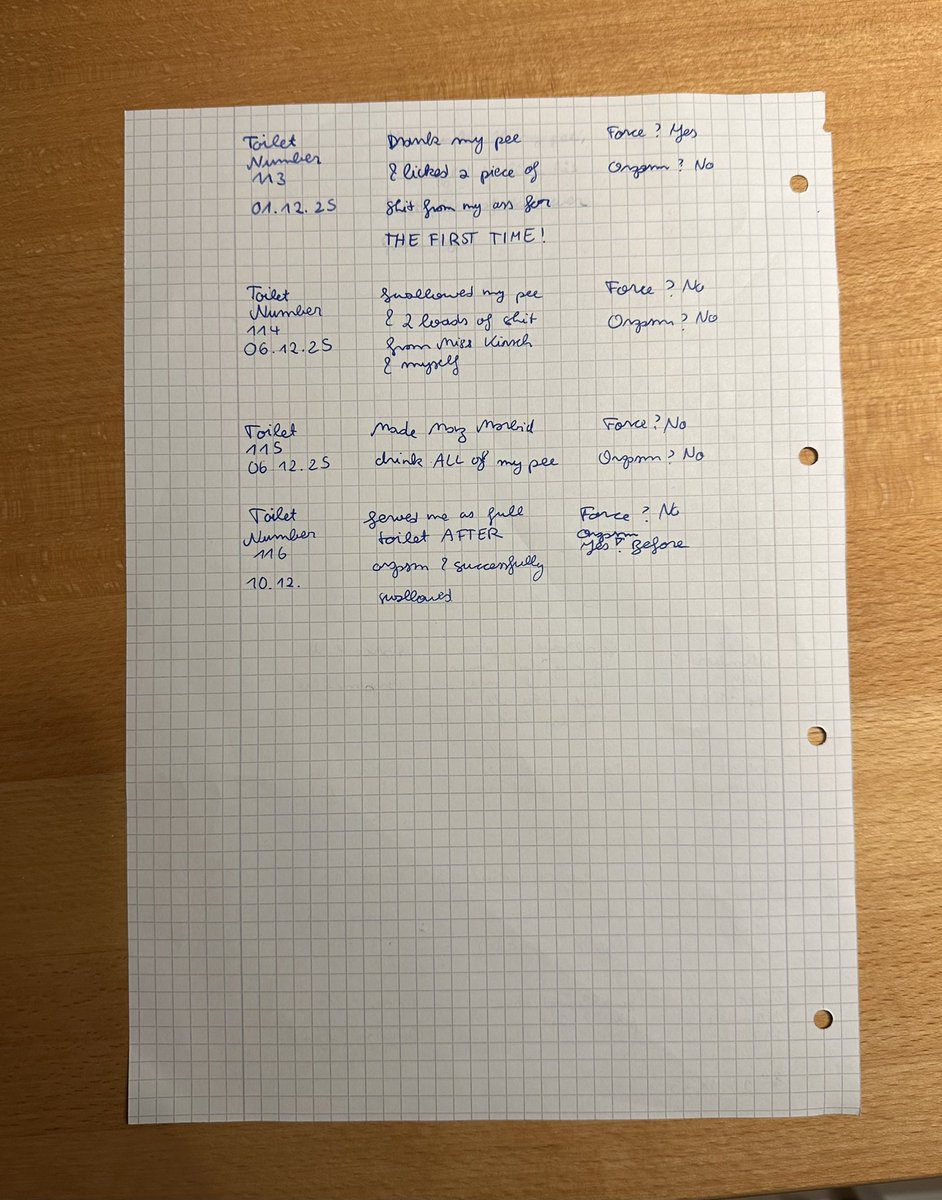 Toilet
Number
113
01.12.25
Drank my pee
& licked a piece of
shit from my ass for
THE FIRST TIME!
Force? Yes
Orgasm? No
Toilet
Number
114
06.12.25
Swallowed my pee
& 2 loads of shit
from Miss Kirsch
& myself
Force? No
Orgasm? No
Toilet
115
06.12.25
Made Morbid
drink ALL of my pee
Force? No
Orgasm? No
Toilet
Number
116
10.12.
Served me as full
toilet AFTER
orgasm & successfully
swallowed
Force? No
Orgasm
Yes? Before